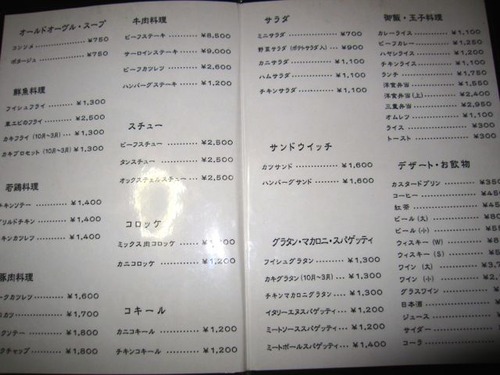 オールドオーヴル・スープ
コンソメ ¥750
ポタージュ ¥750
鮮魚料理
フイシュフライ ¥1,300
車エビのフライ ¥2,500
カキフライ (10月〜3月) ¥1,300
カキプロセット (10月〜3月) ¥1,300
若鶏料理
チキンソテー ¥1,400
グリルドチキン ¥1,400
チキンカツレツ ¥1,400
豚肉料理
ークカツレツ ¥1,600
カツ ¥1,700
ークソテー ¥1,800
クチャップ ¥1,800
牛肉料理
ビーフステーキ ¥8,500
サーロインステーキ ¥9,000
ビーフカツレツ ¥2,600
ハンバーグステーキ ¥1,200
スチュー
ビーフスチュー ¥2,500
タンスチュー ¥2,500
オックステェルスチュー ¥2,500
コロッケ
ミックス肉コロッケ ¥1,200
カニコロッケ ¥1,200
コキール
カニコキール ¥1,200
チキンコキール ¥1,200
サラダ
ミニサラダ ¥700
野菜サラダ (ポテトサラダ入) ¥900
カニサラダ ¥1,100
ハムサラダ ¥1,100
チキンサラダ ¥1,100
サンドウイッチ
カツサンド ¥1,600
ハンバーグサンド ¥1,600
グラタン・マカロニ・スパゲッティ
フイシュグラタン ¥1,300
カキグラタン (10月〜3月) ¥1,300
チキンマカロニグラタン ¥1,200
イタリーエヌスパゲッティ ¥1,200
ミートソーススパゲッティ ¥1,200
ミートボールスパゲッティ ¥1,400
御飯・玉子料理
カレーライス ¥1,100
ビーフカレー ¥1,250
ハヤシライス ¥1,200
チキンライス ¥1,100
ランチ ¥1,750
洋食弁当 ¥1,550
洋食弁当 (上) ¥2,400
三重弁当 ¥2,950
オムレツ ¥1,100
ライス ¥300
トースト ¥300
デザート・お飲物
カスタードプリン ¥350
コーヒー ¥450
紅茶
ビール (大)
ビール (小)
ウィスキー (W)
ウィスキー (S)
ワイン (大)
ワイン (小)
グラスワイン
日本酒
ジュース
サイダー
コーラ